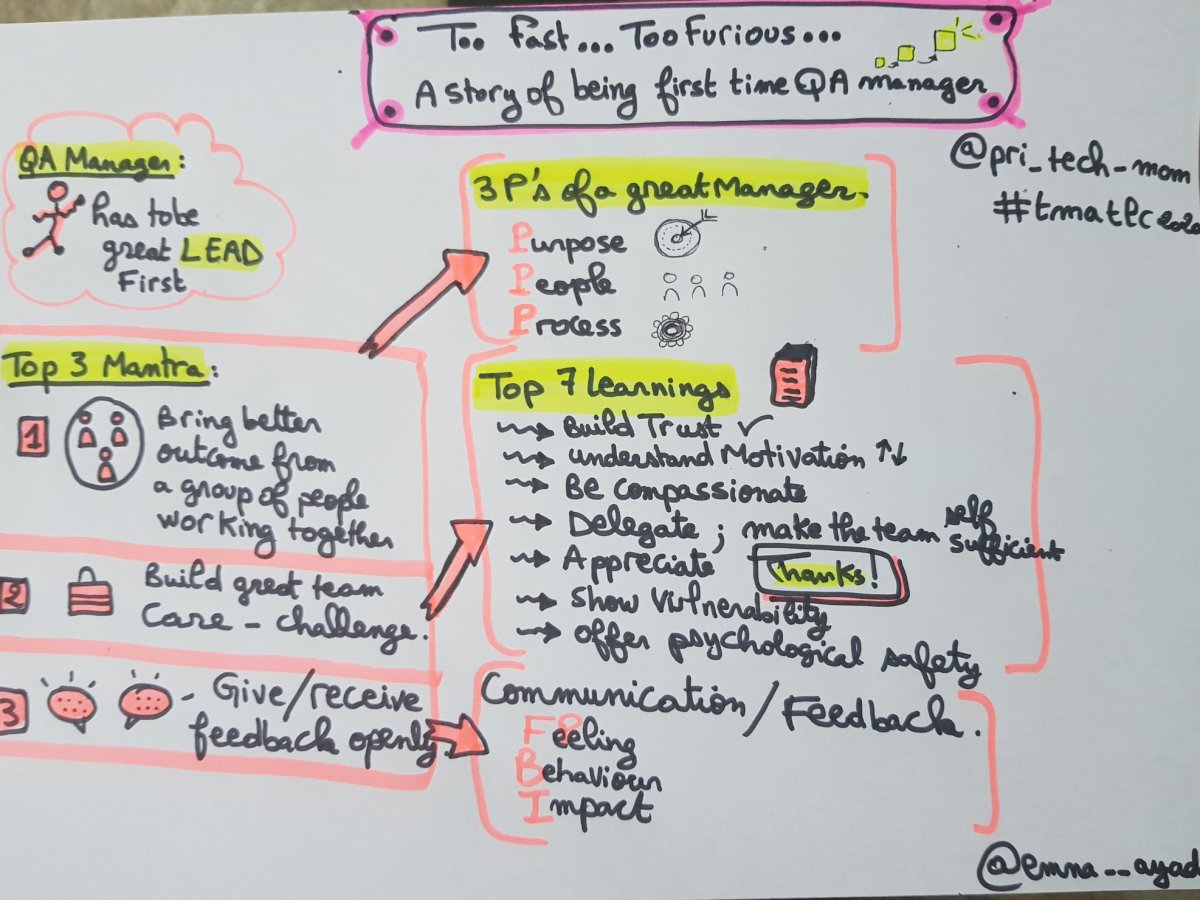 Too fast... Too Furious...
A story of being first time QA manager
@pri_tech_mom
QA Manager:
has to be
great LEAD
First
3 P's of a great Manager.
Purpose
People
Process
Top 3 Mantra:
1
Bring better
outcome from
a group of people
working together
2
Build great team
Care - challenge.
3
- Give/receive
feedback openly.
Top 7 learnings
Build Trust ✓
understand Motivation ↑↓
Be compassionate
Delegate ; make the team self
sufficient
Appreciate Thanks!
Show Vulnerability
offer psychological safety
Communication/Feedback.
Feeling
Behaviour
Impact
@emna__ayad